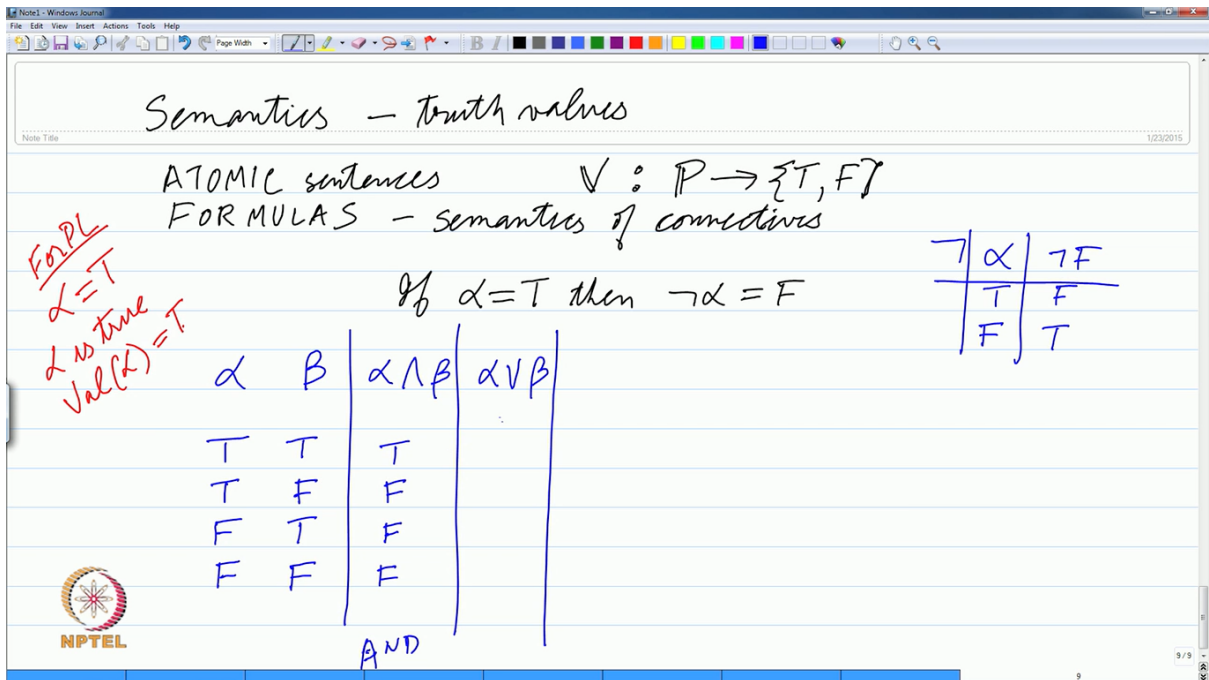 Note1 - Windows Journal
File Edit View Insert Actions Tools Help
Page Width
B I
Semantics – truth values
Note Title
1/23/2015
ATOMIC sentences V : P → {T, F}
FORMULAS – semantics of connectives
For PL
α = T
α is true
Val(α) = T
If α = T then ¬α = F
¬ | α | ¬F
T | F
F | T
α β | α ∧ β | α ∨ β
T T | T
T F | F
F T | F
F F | F
AND
NPTEL
9 / 9
9